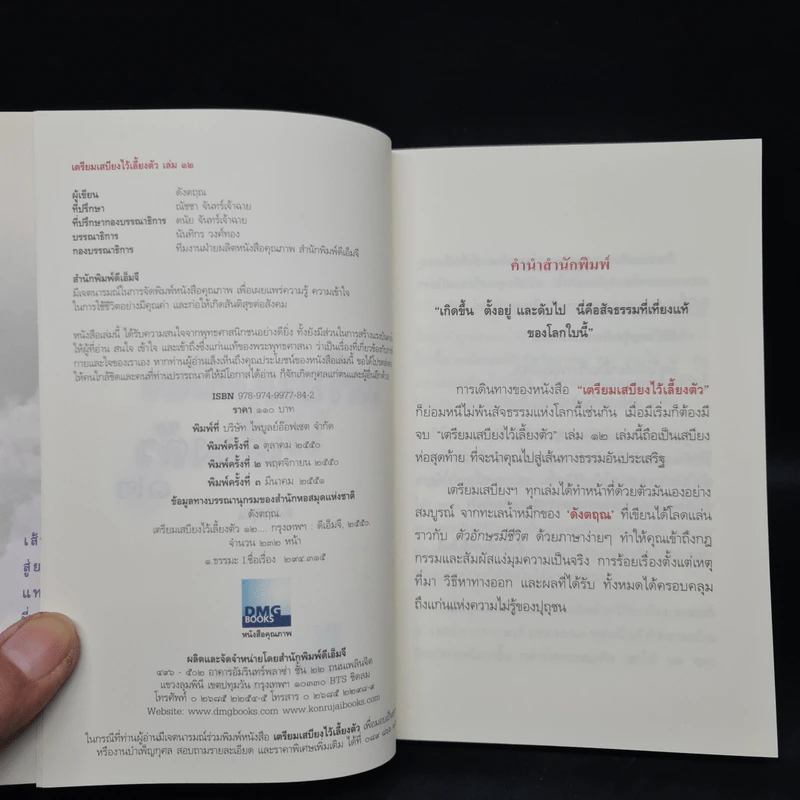 เตรียมเสบียงไว้เลี้ยงตัว เล่ม ๑๒
ผู้เขียน ดังตฤณ
ที่ปรึกษา ณัชชา จันทร์เจ้าฉาย
ที่ปรึกษากองบรรณาธิการ ดนัย จันทร์เจ้าฉาย
บรรณาธิการ นันทิกร วงศ์ทอง
กองบรรณาธิการ ทีมงานฝ่ายผลิตหนังสือคุณภาพ สำนักพิมพ์ดีเอ็มจี
สำนักพิมพ์ดีเอ็มจี
มีเจตนารมณ์ในการจัดพิมพ์หนังสือคุณภาพ เพื่อเผยแพร่ความรู้ ความเข้าใจ
ในการใช้ชีวิตอย่างมีคุณค่า และก่อให้เกิดสันติสุขต่อสังคม
หนังสือเล่มนี้ ได้รับความสนใจจากพุทธศาสนิกชนอย่างดียิ่ง ทั้งยังมีส่วนในการสร้างแรง
ให้ผู้ที่อ่าน สนใจ เข้าใจ และเข้าถึงซึ่งแก่นแท้ของพระพุทธศาสนา ว่าเป็นเรื่องที่เกี่ยวข้องกับ
กายและใจของเราเอง หากท่านผู้อ่านเล็งเห็นถึงคุณประโยชน์ของหนังสือเล่มนี้ ขอได้โปรด
ให้คนใกล้ชิดและคนที่ท่านปรารถนาดีให้มีโอกาสได้อ่าน ก็จักเกิดกุศลแก่ตนและผู้อื่นอีกด้วย
ISBN 978-974-9977-84-2
ราคา ๑๑๐ บาท
พิมพ์ที่ บริษัท ไพบูลย์อ๊อฟเซต จำกัด
พิมพ์ครั้งที่ ๑ ตุลาคม ๒๕๕๐
พิมพ์ครั้งที่ ๒ พฤศจิกายน ๒๕๕๐
พิมพ์ครั้งที่ ๓ มีนาคม ๒๕๕๑
ข้อมูลทางบรรณานุกรมของสำนักหอสมุดแห่งชาติ
ดังตฤณ
เตรียมเสบียงไว้เลี้ยงตัว ๑๒.... กรุงเทพฯ : ดีเอ็มจี, ๒๕๕๐.
จำนวน ๒๓๒ หน้า
๑.ธรรมะ I.ชื่อเรื่อง ๒๙๔.๓๑๕
DMG
BOOKS
หนังสือคุณภาพ
ผลิตและจัดจำหน่ายโดยสำนักพิมพ์ดีเอ็มจี
๔๙๖ - ๕๐๒ อาคารอัมรินทร์พลาซ่า ชั้น ๒๒ ถนนเพลินจิต
แขวงลุมพินี เขตปทุมวัน กรุงเทพฯ ๑๐๓๓๐ BTS ชิดลม
โทรศัพท์ ๐ ๒๖๘๕ ๒๒๕๔-๕ โทรสาร ๐ ๒๖๘๕
Website: www.dmgbooks.com www.konrujaibooks.com
ในกรณีที่ท่านผู้อ่านมีเจตนารมณ์ร่วมพิมพ์หนังสือ เตรียมเสบียงไว้เลี้ยงตัว
หรืองานบำเพ็ญกุศล สอบถามรายละเอียด และราคาพิเศษเพิ่มเติม ได้ที่
คำนำสำนักพิมพ์
“เกิดขึ้น ตั้งอยู่ และดับไป นี่คือสัจธรรมที่เที่ยงแท้
ของโลกใบนี้”
การเดินทางของหนังสือ “เตรียมเสบียงไว้เลี้ยงตัว”
ก็ย่อมหนีไม่พ้นสัจธรรมแห่งโลกนี้เช่นกัน เมื่อมีเริ่มก็ต้องมี
จบ “เตรียมเสบียงไว้เลี้ยงตัว” เล่ม ๑๒ เล่มนี้ถือเป็นเสบียง
ห่อสุดท้าย ที่จะนำคุณไปสู่เส้นทางธรรมอันประเสริฐ
เตรียมเสบียงฯ ทุกเล่มได้ทำหน้าที่ด้วยตัวมันเองอย่าง
สมบูรณ์ จากทะเลน้ำหมึกของ ‘ดังตฤณ’ ที่เขียนได้โลดแล่น
ราวกับ ตัวอักษรมีชีวิต ด้วยภาษาง่ายๆ ทำให้คุณเข้าถึงกฎ
กรรมและสัมผัสแง่มุมความเป็นจริง การร้อยเรื่องตั้งแต่เหตุ
ที่มา วิธีหาทางออก และผลที่ได้รับ ทั้งหมดได้ครอบคลุม
ถึงแก่นแห่งความไม่รู้ของปุถุชน